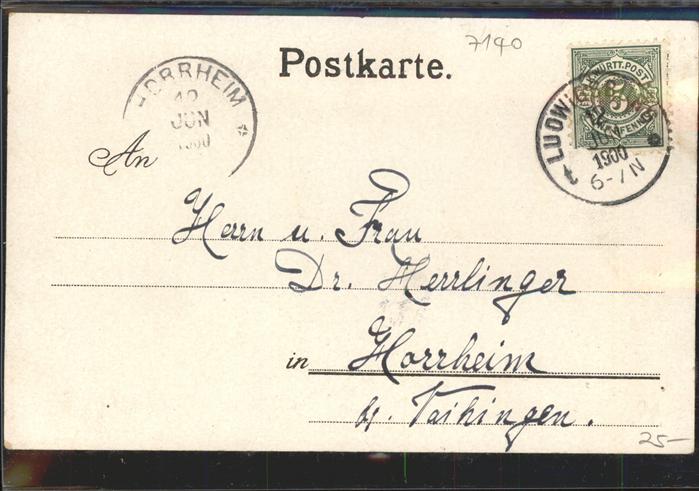 7140
Postkarte.
HORRHEIM
JUN
1900
K.WÜRTT.POST
5
LUDWIGSBURG
JUN
1900
6-7N
An
Herrn u. Frau
Dr. Herrlinger
in Horrheim
b/. Vaihingen.
25-